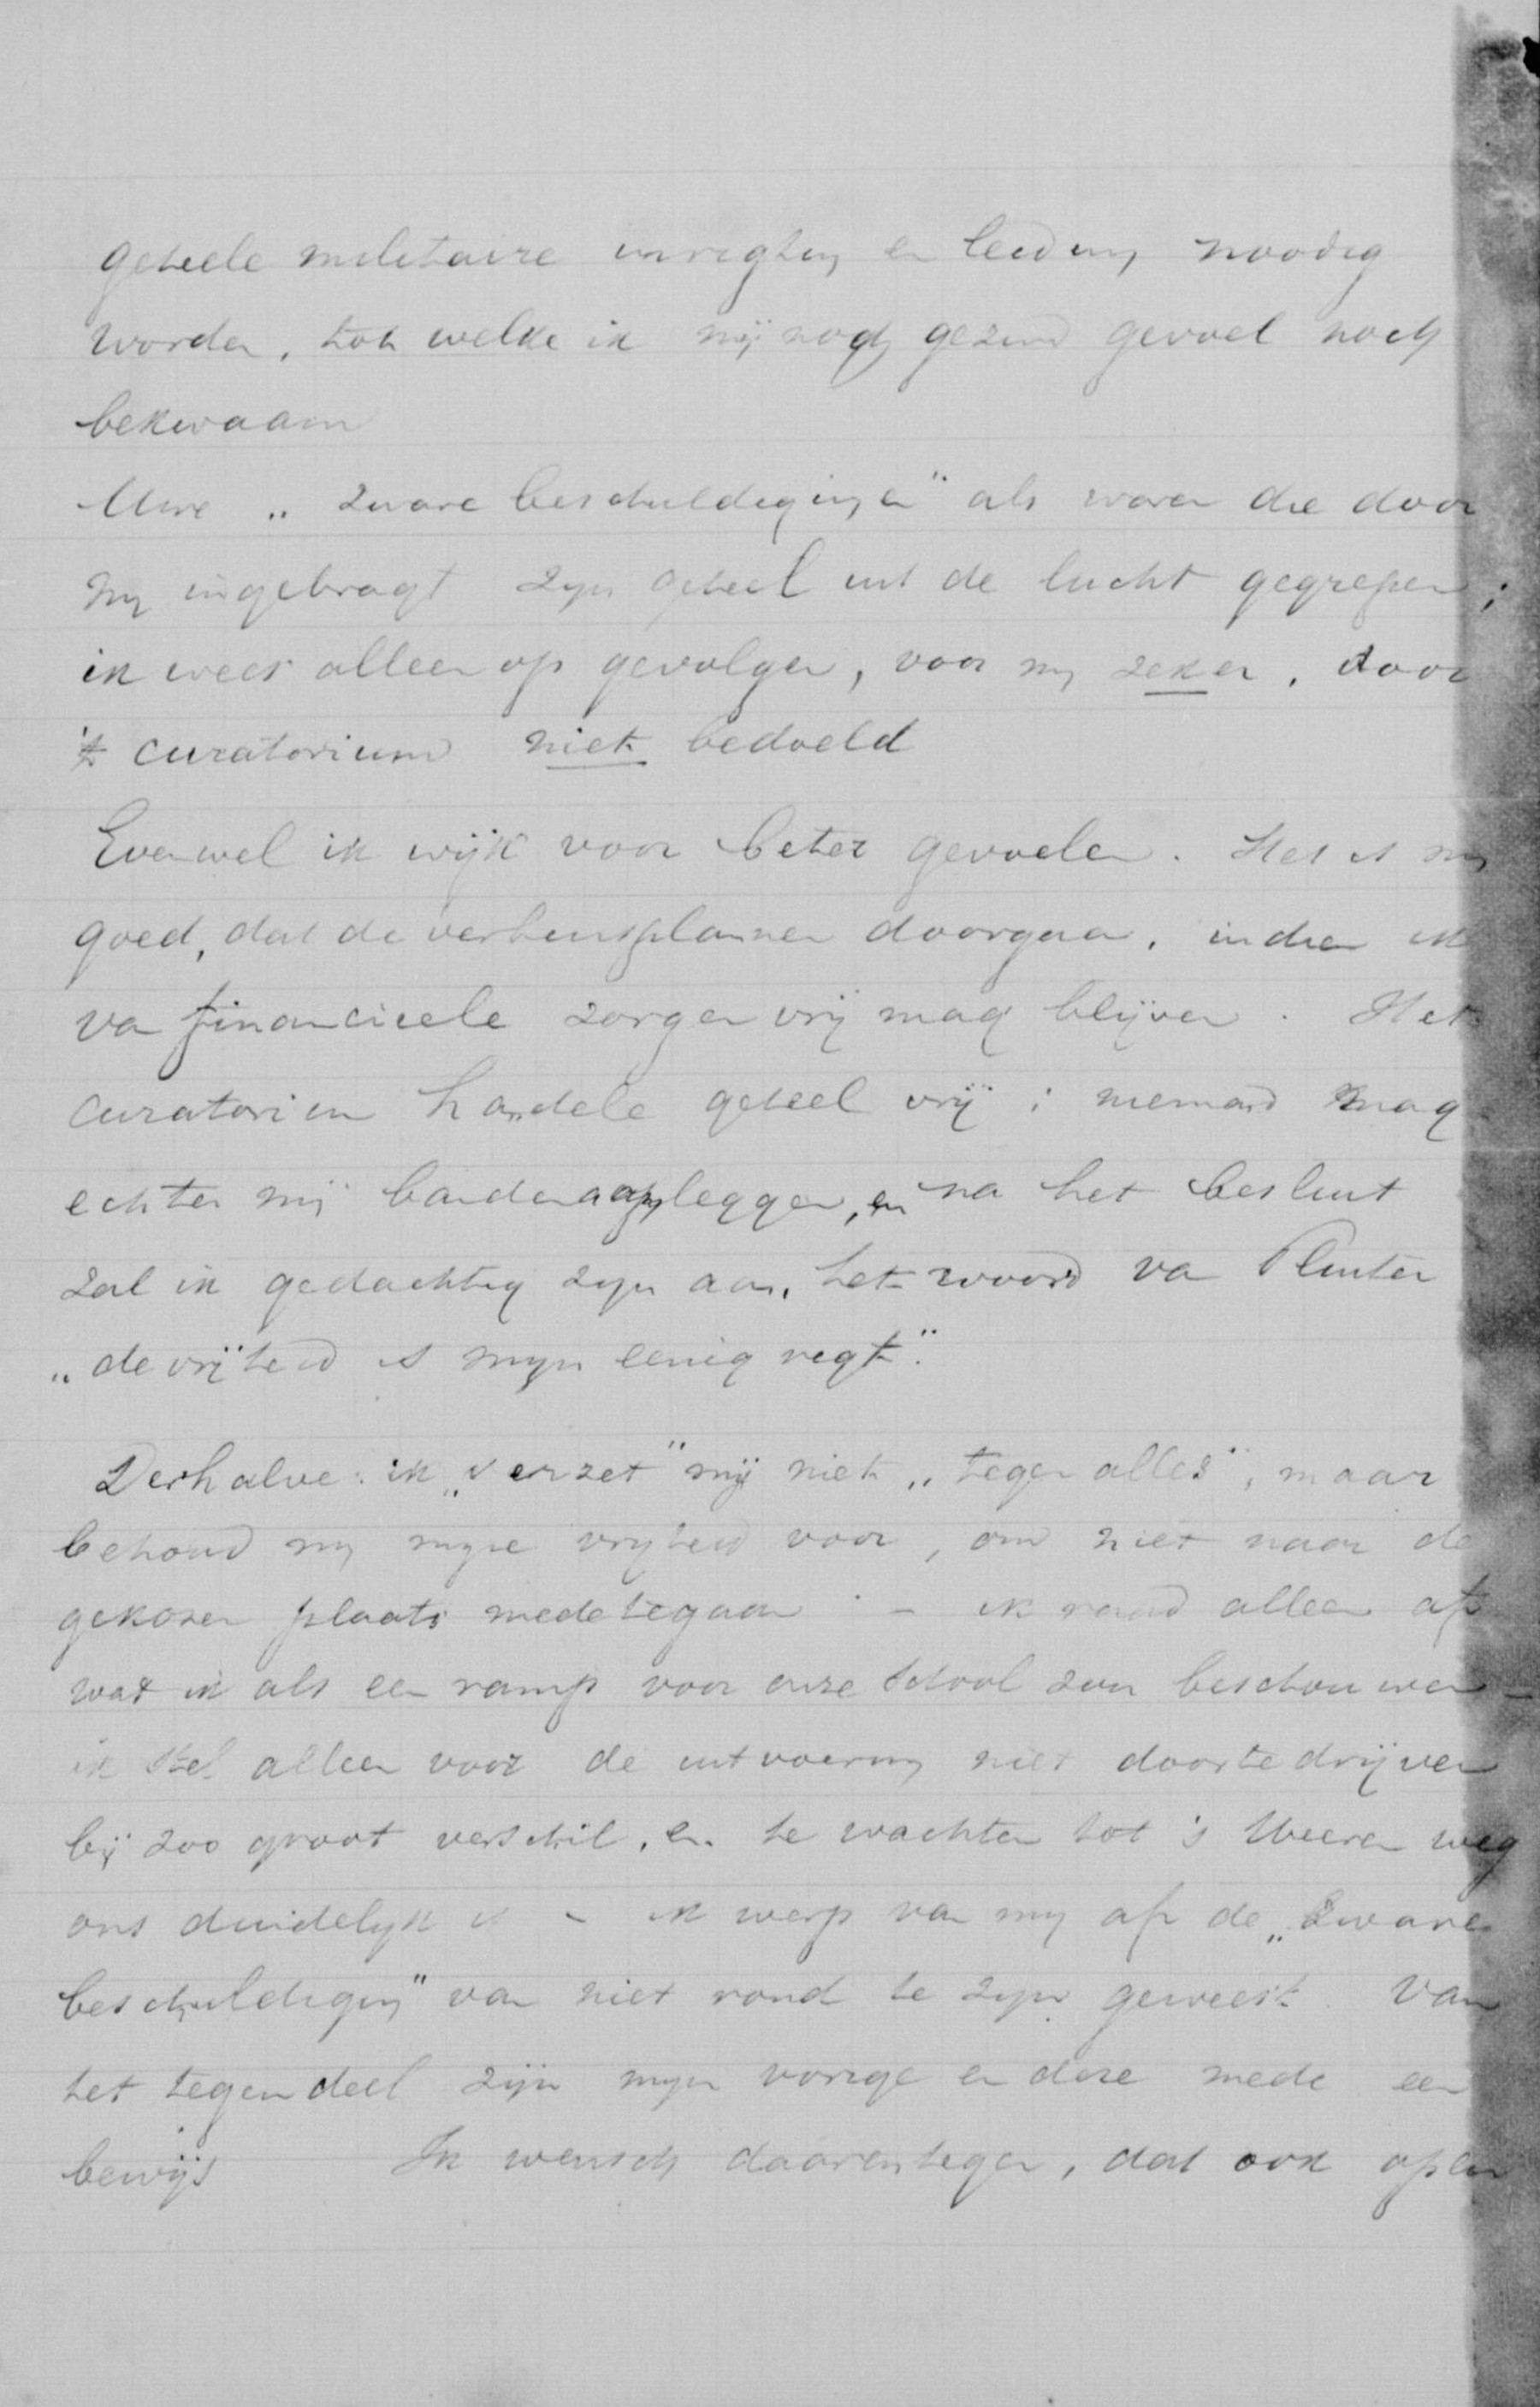 geheele militaire inrigting en leiding noodig
worden, tot welke ik mij nog gezind gevoel noch
bekwaam
Uwe „zware beschuldigingen" als waren die door
mij ingebragt zijn geheel uit de lucht gegrepen;
ik wees alleen op gevolgen, voor mij zeker, door
't curatorium niet bedoeld
Evenwel ik wijk voor beter gevoelen. Het is mij
goed, dat de verhuisplannen doorgaan, indien ik
van financieele zorgen vrij mag blijven. Het
curatorium handele geheel vrij; niemand mag
echter mij banden aanleggen, en na het besluit
zal ik gedachtig zijn aan het woord van
„de vrijheid is mijn eenig regt".
Derhalve: ik „verzet" mij niet „tegen alles", maar
behoud mij mijne vrijheid voor, om niet naar de
gekozen plaats medetegaan; – ik raad alleen af
wat ik als een ramp voor onze school zou beschouwen –
ik stel alleen voor de uitvoering niet doortedrijven
bij zoo groot verschil, en te wachten tot 's Heeren weg
ons duidelijk is – ik werp van mij af de „zware
beschuldiging" van niet rond te zijn geweest. Van
het tegendeel zijn mijn vorige en deze mede een
bewijs Ik wensch daarentegen, dat ook